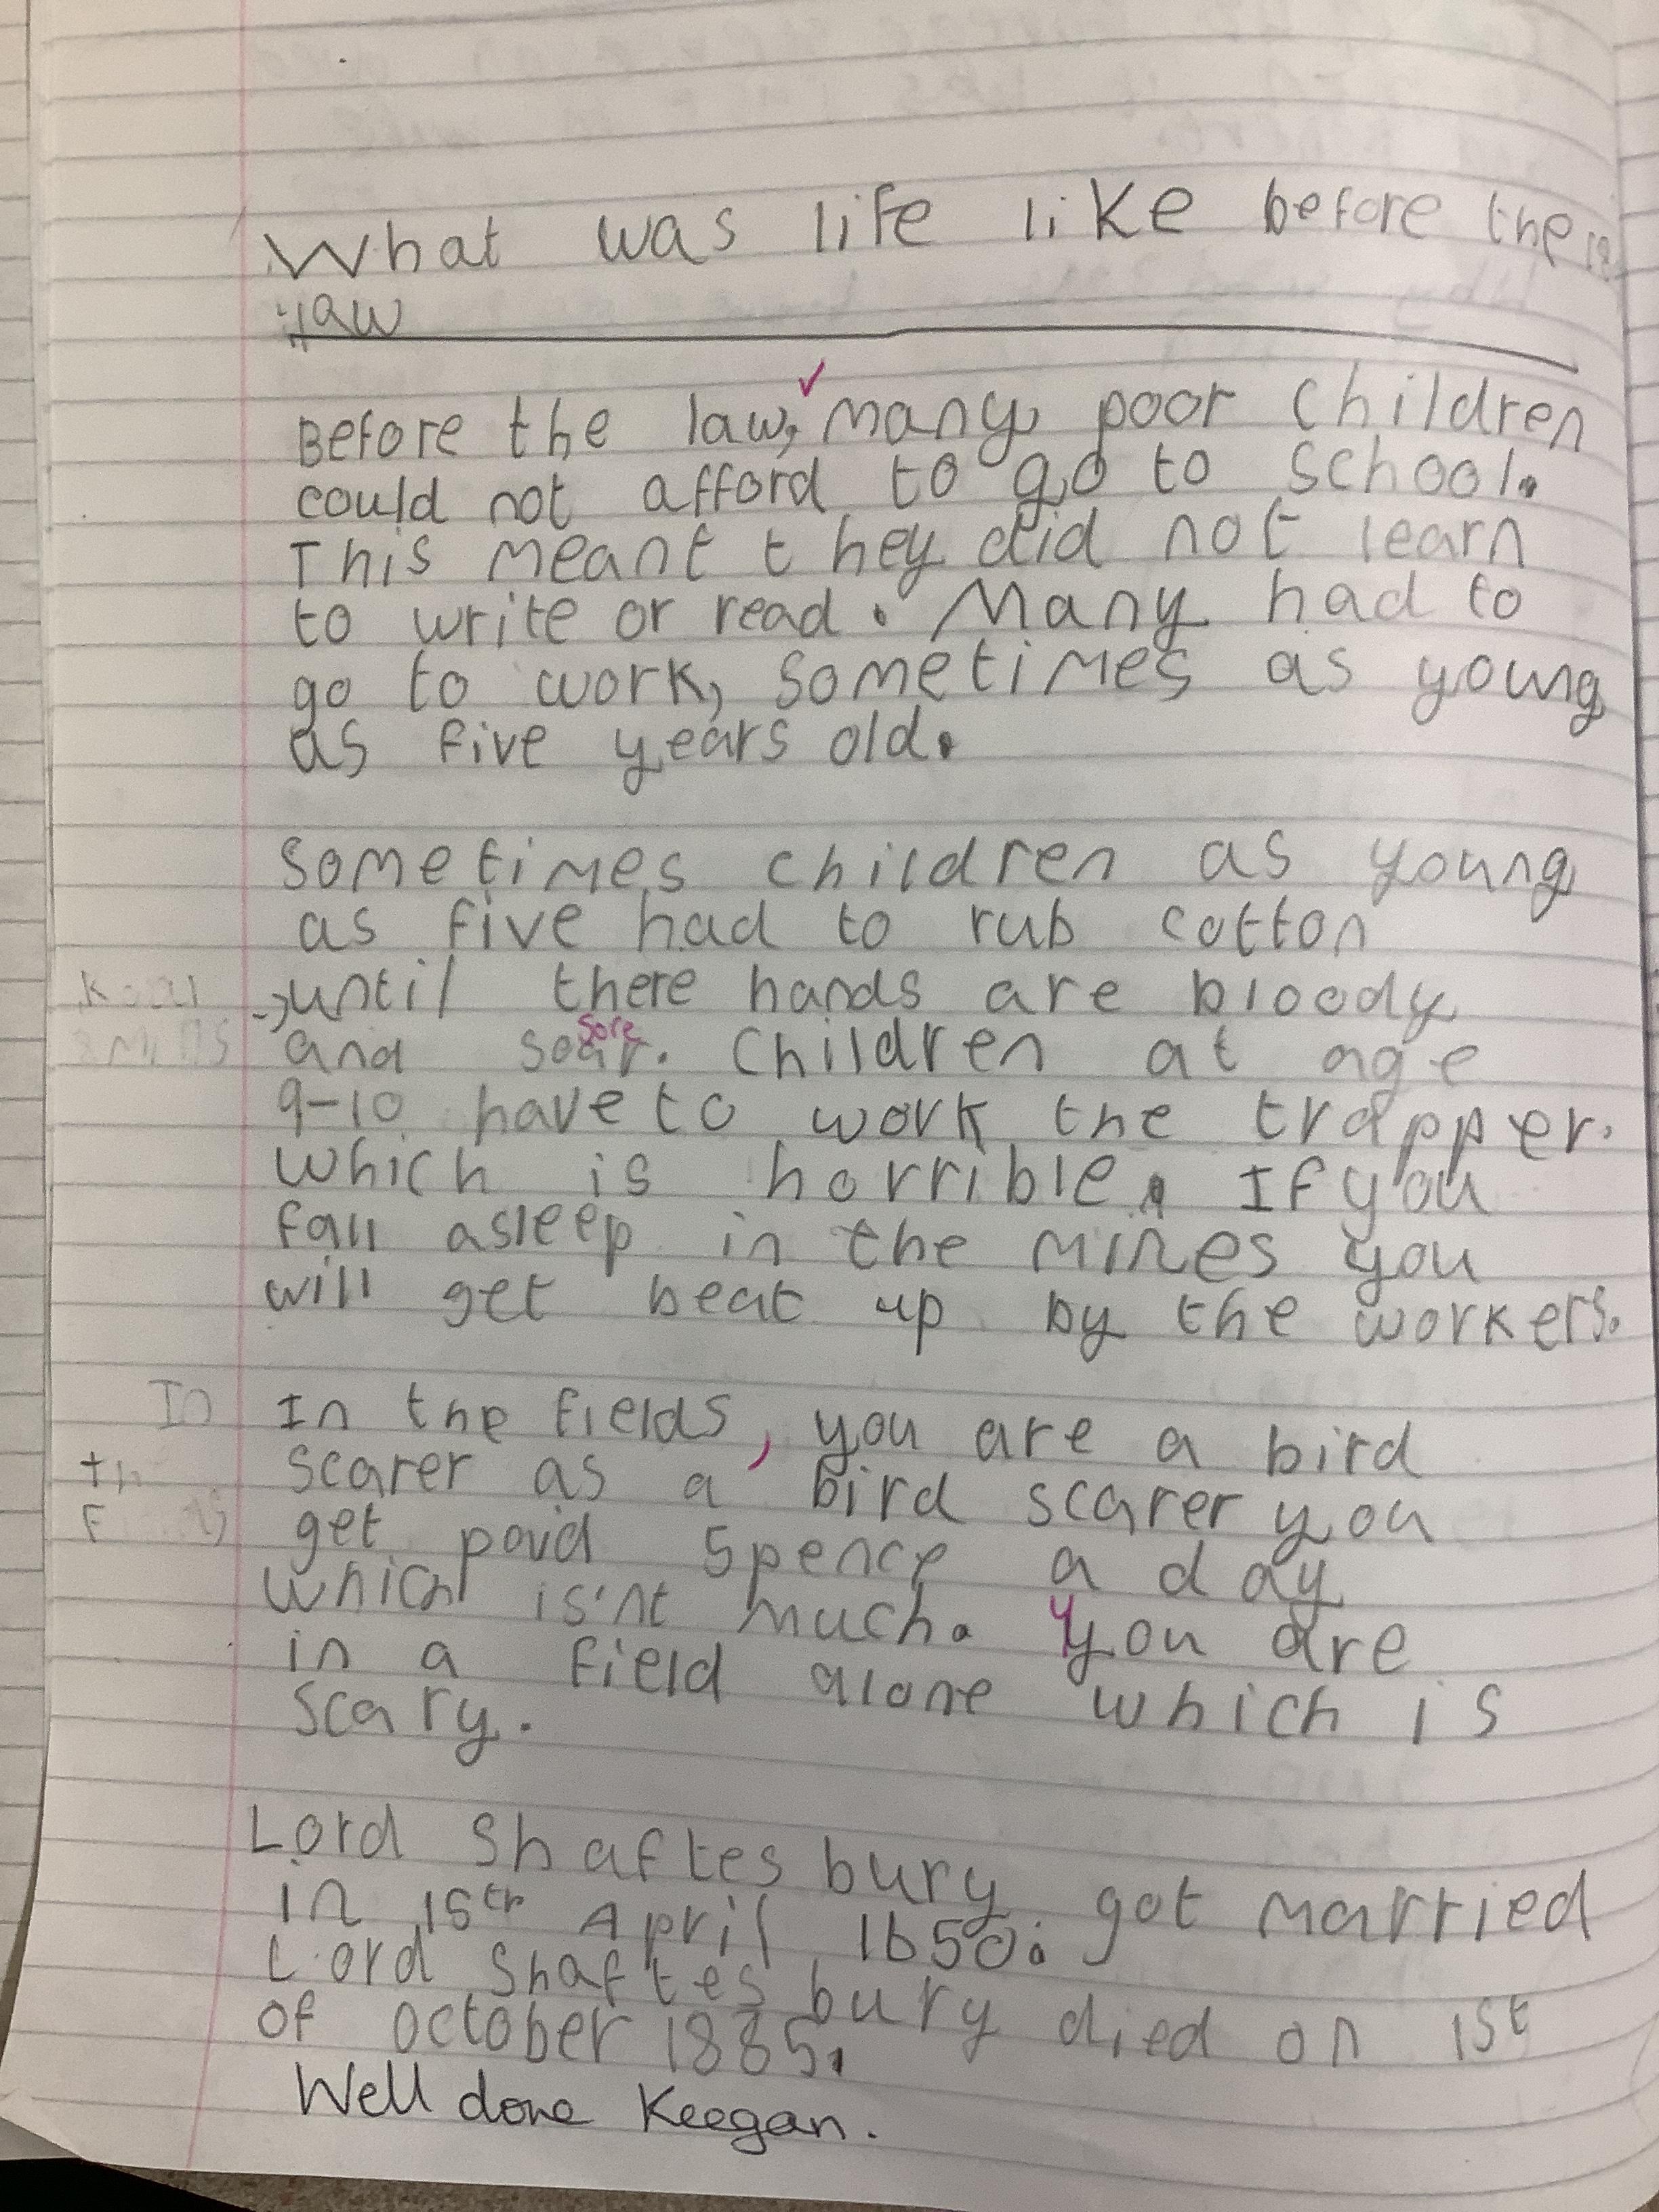 What was life like before the
law
Before the law, many poor children
could not afford to go to school.
This meant they did not learn
to write or read. Many had to
go to work, sometimes as young
as five years old.
Sometimes children as young
as five had to rub cotton
until there hands are bloody
sore
and soar. Children at age
9-10 have to work the trapper.
which is horrible. If you
fall asleep in the mines you
will get beat up by the workers.
In
In the fields, you are a bird
scarer as a bird scarer you
get paid 5pence a day
which is'nt much. You are
in a field alone which is
scary.
Lord Shaftesbury got married
in 15th April 1650.
Lord Shaftesbury died on 1st
of October 1885.
Well done Keegan.